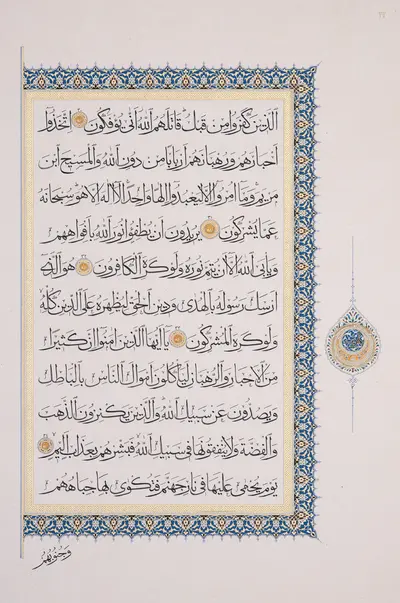 ٢٢
الذين كفروا من قبل قاتلهم الله أنى يؤفكون اتخذوا
أحبارهم ورهبانهم أربابا من دون الله والمسيح ابن
مريم وما أمروا إلا ليعبدوا إلها واحدا لا إله إلا هو سبحانه
عما يشركون يريدون أن يطفئوا نور الله بأفواههم
ويأبى الله إلا أن يتم نوره ولو كره الكافرون هو الذي
أرسل رسوله بالهدى ودين الحق ليظهره على الدين كله
ولو كره المشركون يا أيها الذين آمنوا إن كثيرا
من الأحبار والرهبان ليأكلون أموال الناس بالباطل
ويصدون عن سبيل الله والذين يكنزون الذهب
والفضة ولا ينفقونها في سبيل الله فبشرهم بعذاب أليم
يوم يحمى عليها في نار جهنم فتكوى بها جباههم
وجنوبهم